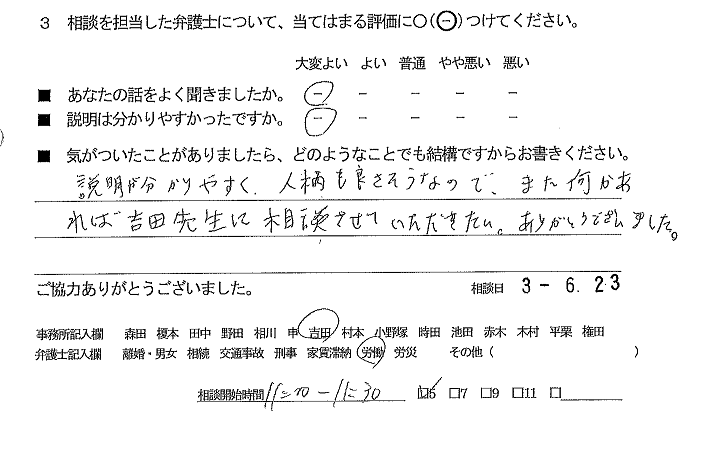 3 相談を担当した弁護士について、当てはまる評価に○(⊖)つけてください。
大変よい よい 普通 やや悪い 悪い
■ あなたの話をよく聞きましたか。 － － － － －
■ 説明は分かりやすかったですか。 － － － － －
■ 気がついたことがありましたら、どのようなことでも結構ですからお書きください。
説明が分かりやすく、人柄も良さそうなので、また何かあ
れば吉田先生に相談させていただきたい。ありがとうございました。
ご協力ありがとうございました。 相談日 3-6.23
事務所記入欄 森田 榎本 田中 野田 相川 申 吉田 村本 小野塚 時田 池田 赤木 木村 平栗 権田
弁護士記入欄 離婚・男女 相続 交通事故 刑事 家賃滞納 労働 労災 その他 ( )
相談開始時間 11:00-11:30 ☑5 □7 □9 □11 □